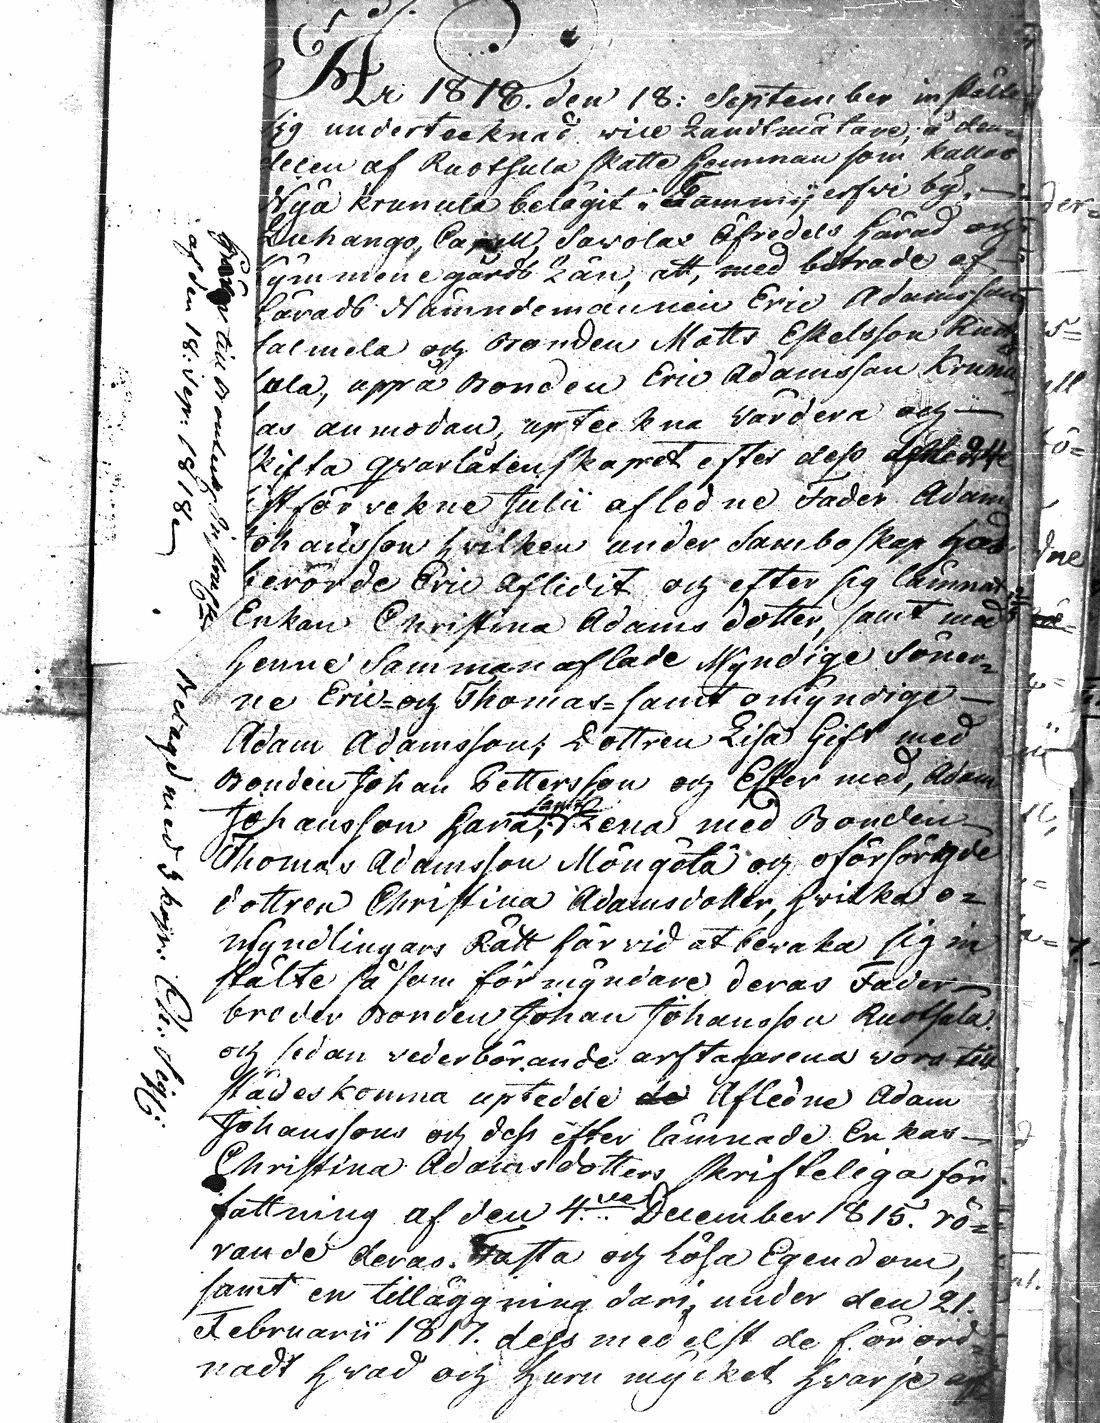 År 1818. den 18: September instälte
sig undertecknad vice Landtmätare, å den
delen af Ruotsula skatte hemman som kallas
Nyä Krunula belägit i Tammijerfwi by,
Luhango, Capell, Savolas öfredels härad och
Kymmenegårds Län, att, med biträde af
härads Nämndemannen Eric Adamsson
Salmela och Bonden Matts Eskelsson
uppå Bonden Eric Adamsson Krunu=
las anmodan, upteckna värdera och
skifta qvarlåtenskapet efter dess
istförvekne Julii afledne Fader Adam
Johansson hvilken under Samboskap med
berörde Eric aflidit och efter sig lämnat
Enkan Christina Adamsdotter, samt med
henne Sammanaflade Myndige Söner=
ne Eric= och Thomas= samt omyndige
Adam Adamsson; Dottren Lisa Gift med
Bonden Johan Pettersson och Ester med, Adam
Johansson Hara; samt Lena med Bonden
Thomas Adamsson Möngölä och oförsörgde
dottren Christina Adamsdotter, hvilka o=
myndlingars Rätt härvid at bevaka sig in
stälte så som förmyndare deras Fader
broder Bonden Johan Johansson Ruotsala
och sedan vederbörande arftagarena voro till
städeskomna uptedde de Afledne Adam
Johanssons och dess efterlämnade Enkas
Christina Adamsdotters skrifteliga för
fattning af den 4de December 1815. rö=
rande deras Fasta och Lösa Egendom,
samt en tilläggning dari, under den 21.
Februarii 1817. dess medelst de förord=
nadt hvad och huru mycket hvarje af
till Bonden
af den 18: Sepr: 1818
Betagd med 3 kopr: Ch: Sig: